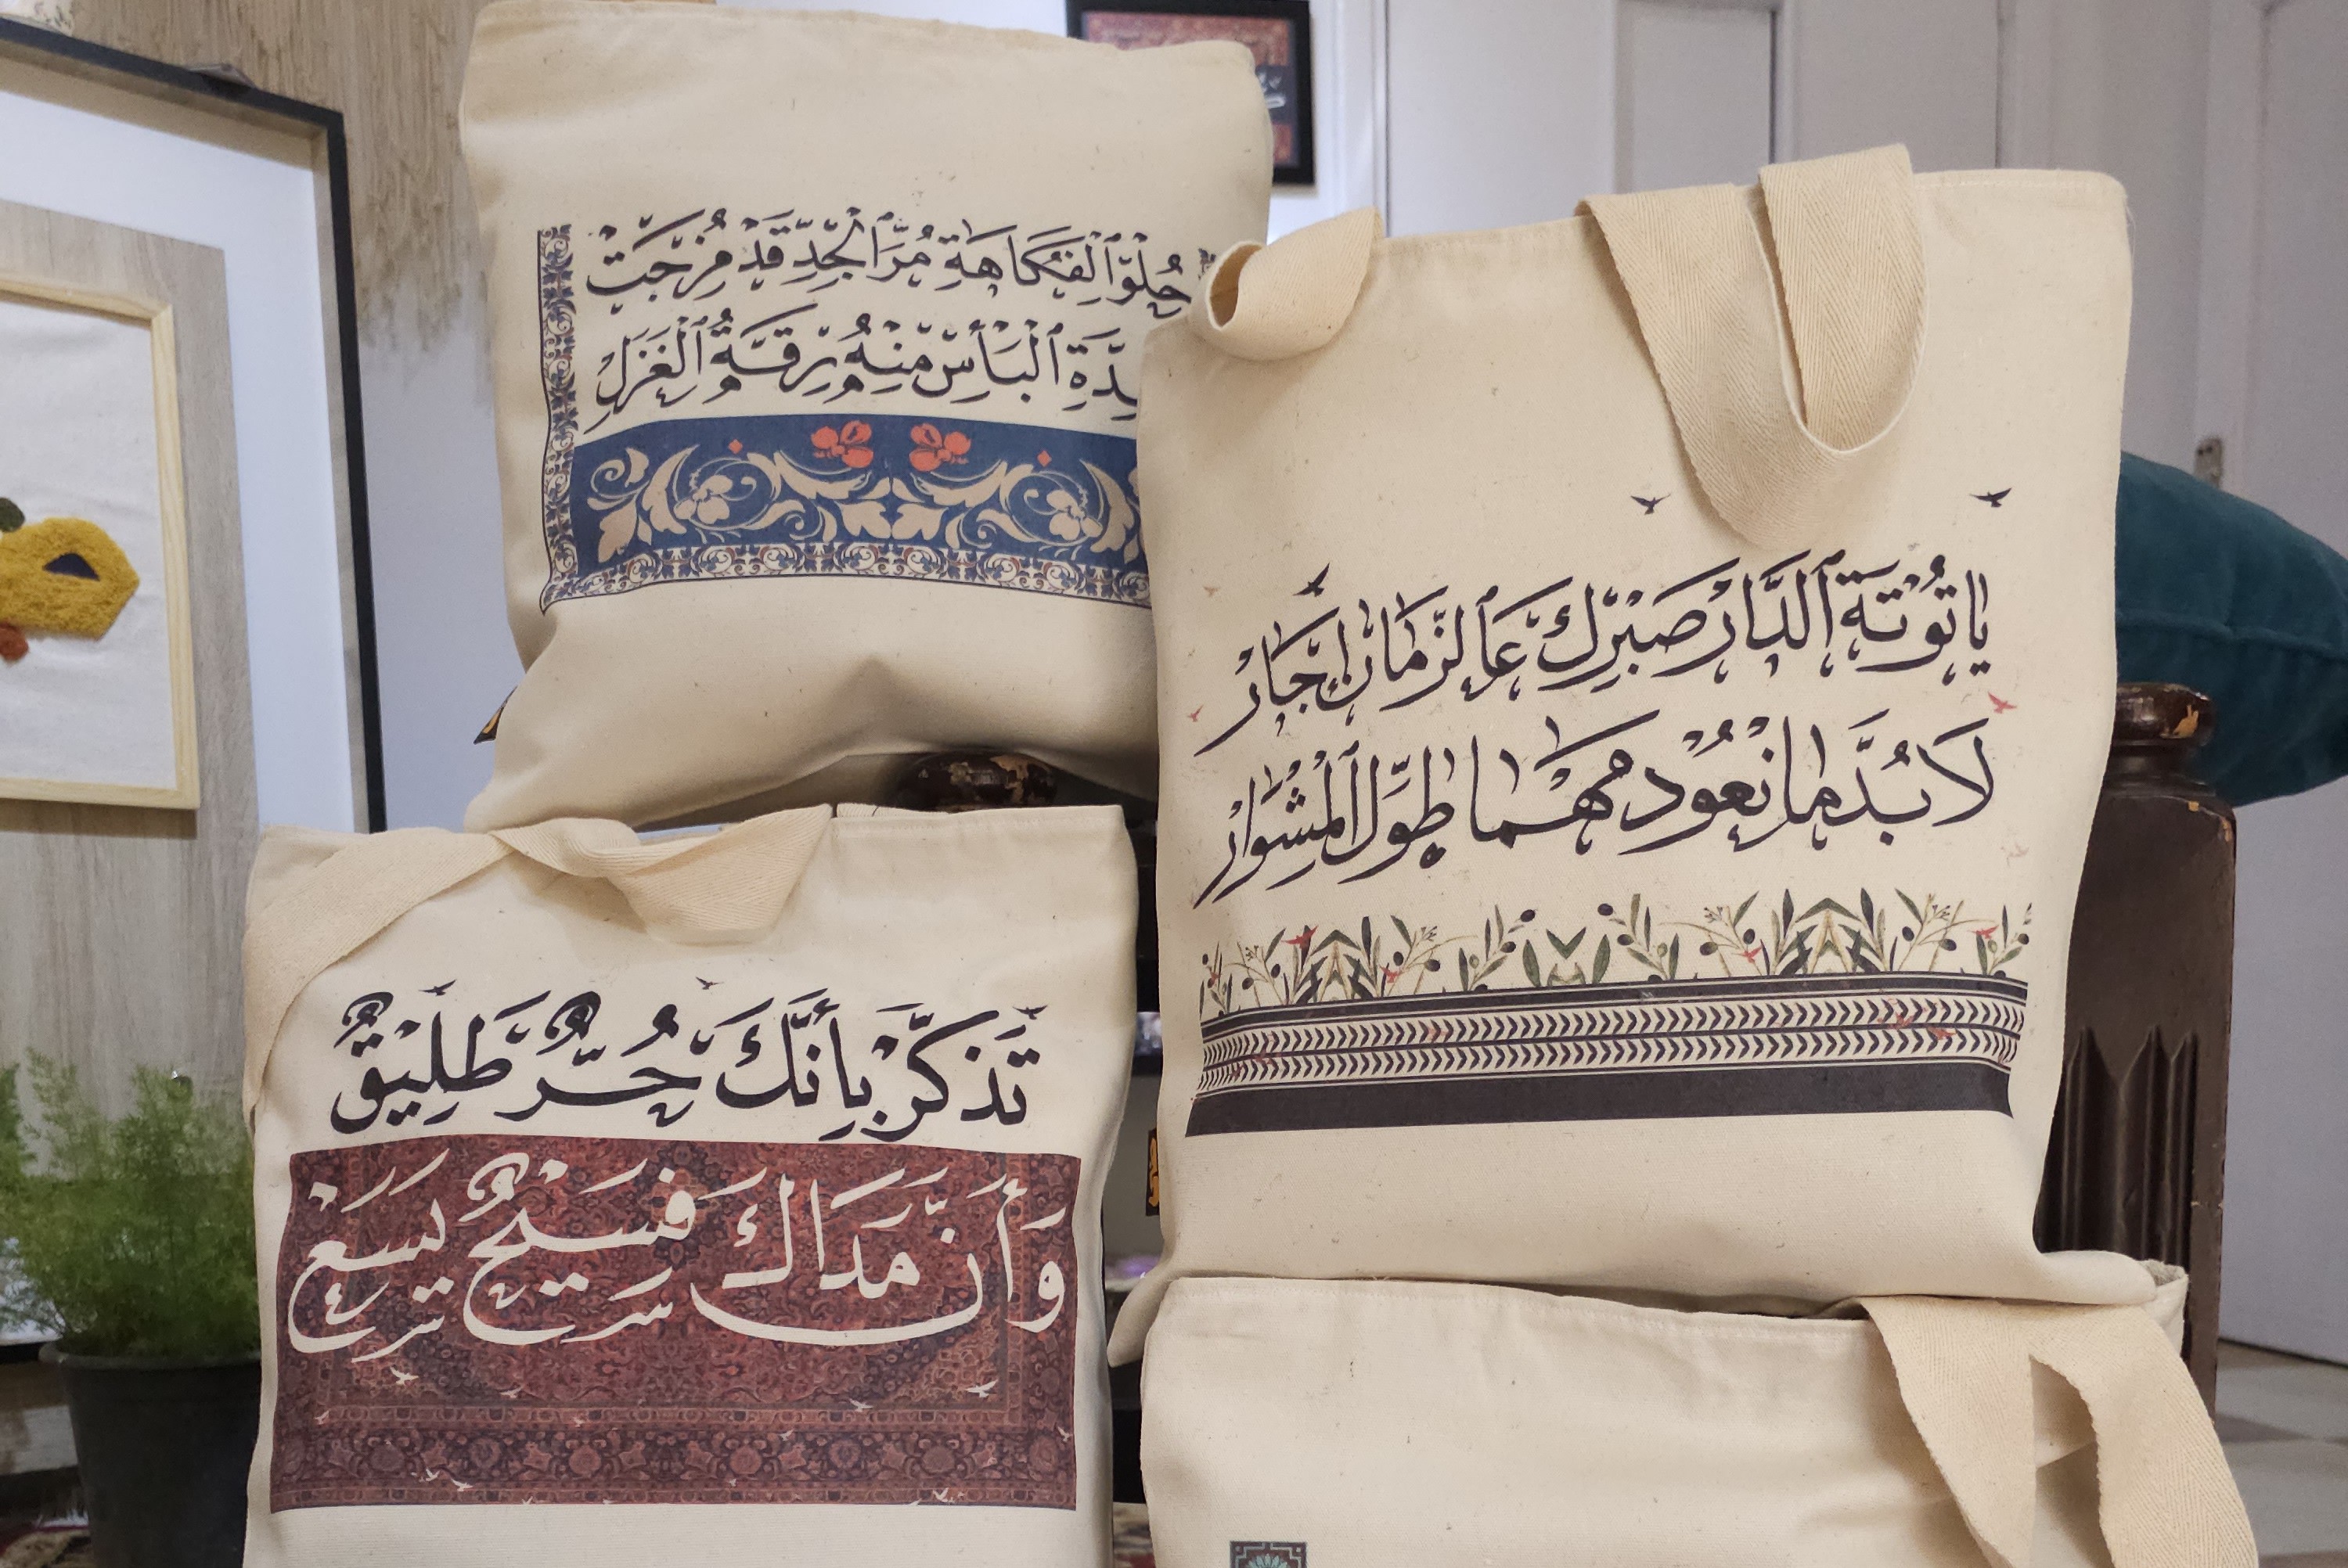 حُلْوُ ٱلْفُكَاهَةِ مُرُّ ٱلْجِدِّ قَدْ مُزِجَتْ
ٱلْبَأْسِ مِنْهُ رِقَّةُ ٱلْغَزَلِ
يا تُوتَة ٱلدَّارْ صَبْرِكْ عَٱلزَّمانْ إنْ جَارْ
لَا بُدَّ ما نْعُودْ مَهْما طَوَّل ٱلْمُشْوارْ
تَذَكَّرْ بِأَنَّكَ حُرٌّ طَلِيْقٌ
وَأَنَّ مَدَاكَ فَسَيْحٌ يَسَعْ